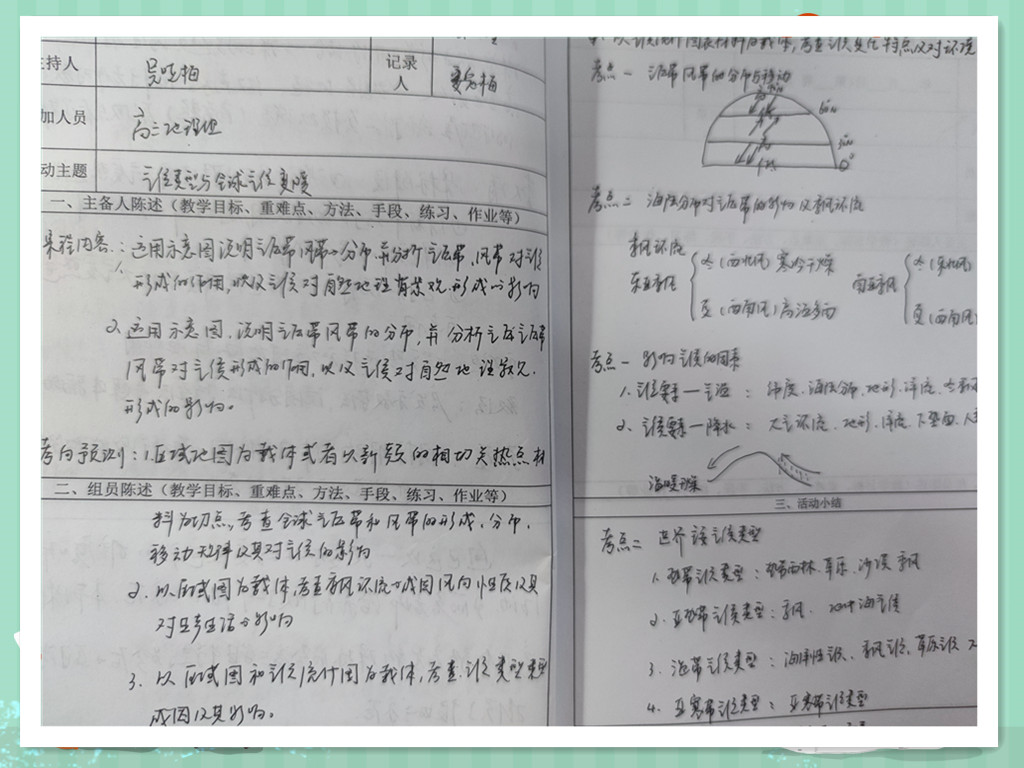 主持人
记录人
加人员 高三地理组
动主题 气候类型与全球气候变暖
一、主备人陈述（教学目标、重难点、方法、手段、练习、作业等）
课程内容：
1. 运用示意图说明气压带风带的分布，并分析气压带、风带对气候
形成的作用，以及气候对自然地理景观形成的影响
2. 运用示意图，说明气压带风带的分布，并分析气压带
风带对气候形成的作用，以及气候对自然地理景观
形成的影响。
考向预测：1. 区域地图为载体或者以新颖的相切关热点材
二、组员陈述（教学目标、重难点、方法、手段、练习、作业等）
料为切点，考查全球气压带和风带的形成，分布，
移动规律及其对气候的影响
2. 以区域图为载体，考查季风环流的成因风向性质及其
对生产生活的影响
3. 以区域图和气候统计图为载体，考查气候类型
成因及其影响。
以气候统计图表材料为载体，考查气候变化特点以及对环境
考点一 气压带风带的分布与移动
60°N
30°N
0°
考点二 海陆分布对气压带的影响以及季风环流
季风环流
东亚季风
冬（西北风）寒冷干燥
夏（东南风）高温多雨
南亚季风
冬（东北风）
夏（西南风）
考点一 影响气候的因素
1. 气候要素一气温：纬度、海陆分布、地形、洋流、
2. 气候要素一降水：大气环流、地形、洋流、下垫面、人
三、活动小结
考点二 世界主要气候类型
1. 热带气候类型：热带雨林、草原、沙漠、季风
2. 亚热带气候类型：季风、地中海气候
3. 温带气候类型：海洋性气候、季风气候、草原气候
4. 亚寒带气候类型：亚寒带气候类型